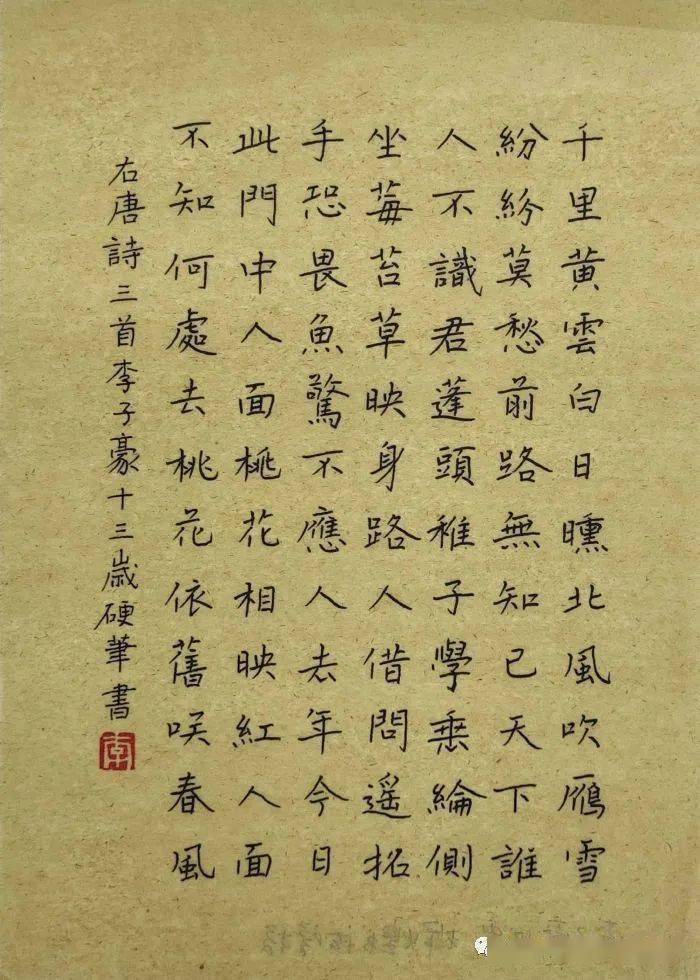 千里黃雲白日曛北風吹鴈雪
紛紛莫愁前路無知己天下誰
人不識君蓬頭稚子學垂綸側
坐莓苔草映身路人借問遙招
手恐畏魚驚不應人去年今日
此門中人面桃花相映紅人面
不知何處去桃花依舊咲春風
右唐詩三首李子豪十三歲硬筆書